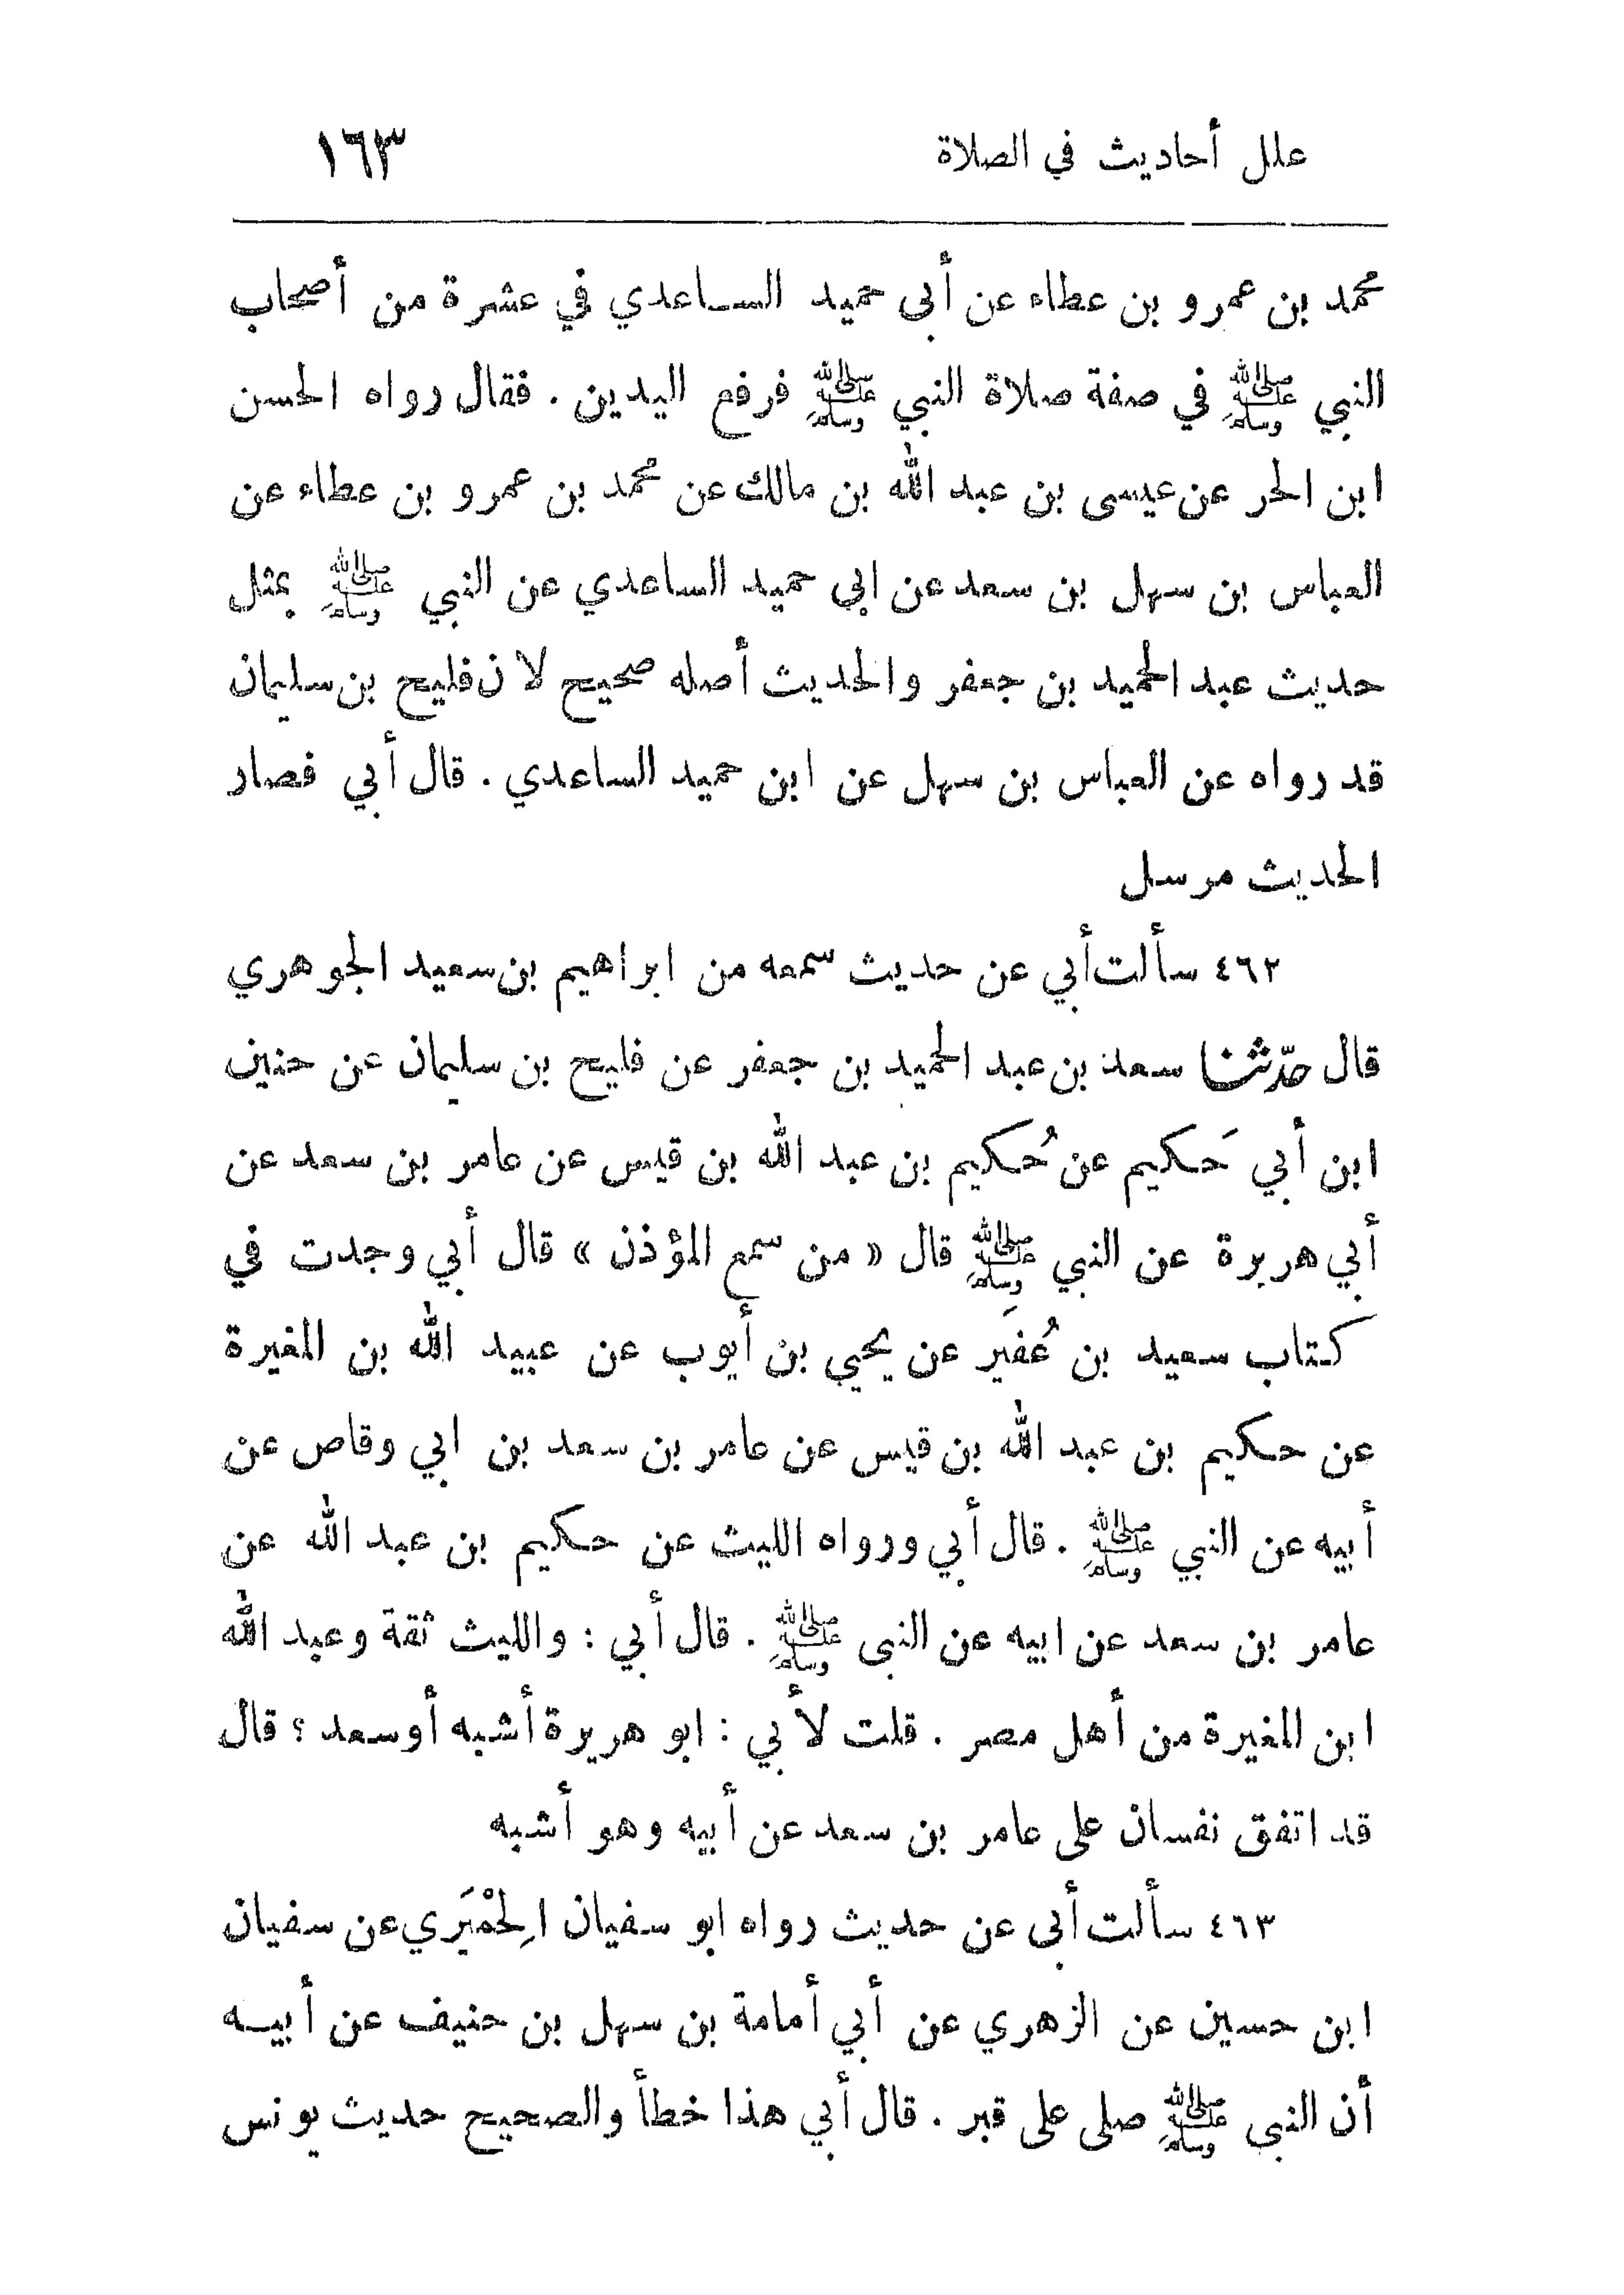 علل أحاديث في الصلاة ١٦٣
محمد بن عمرو بن عطاء عن أبي حميد الساعدي في عشرة من أصحاب
النبي ﷺ في صفة صلاة النبي ﷺ فرفع اليدين . فقال رواه الحسن
ابن الحر عن عيسى بن عبد الله بن مالك عن محمد بن عمرو بن عطاء عن
العباس بن سهل بن سعد عن ابي حميد الساعدي عن النبي ﷺ بمثل
حديث عبد الحميد بن جعفر والحديث أصله صحيح لان فليح بن سليمان
قد رواه عن العباس بن سهل عن ابن حميد الساعدي . قال أبي فصار
الحديث مرسل
٤٦٢ سألت أبي عن حديث سمعه من ابراهيم بن سعيد الجوهري
قال حدّثنا سعد بن عبد الحميد بن جعفر عن فليح بن سليمان عن حنين
ابن أبي حَكيم عن حُكيم بن عبد الله بن قيس عن عامر بن سعد عن
أبي هريرة عن النبي ﷺ قال « من سمع المؤذن » قال أبي وجدت في
كتاب سعيد بن عُفَير عن يحيي بن أيوب عن عبيد الله بن المغيرة
عن حكيم بن عبد الله بن قيس عن عامر بن سعد بن ابي وقاص عن
أبيه عن النبي ﷺ . قال أبي ورواه الليث عن حكيم بن عبد الله عن
عامر بن سعد عن ابيه عن النبى ﷺ . قال أبي : والليث ثقة وعبد الله
ابن المغيرة من أهل مصر . قلت لأبي : ابو هريرة أشبه أو سعد ؟ قال
قد اتفق نفسان على عامر بن سعد عن أبيه وهو أشبه
٤٦٣ سألت أبى عن حديث رواه ابو سفيان الِحْمَيري عن سفيان
ابن حسين عن الزهري عن أبي أمامة بن سهل بن حنيف عن أبيه
أن النبي ﷺ صلى على قبر . قال أبي هذا خطأ والصحيح حديث يونس